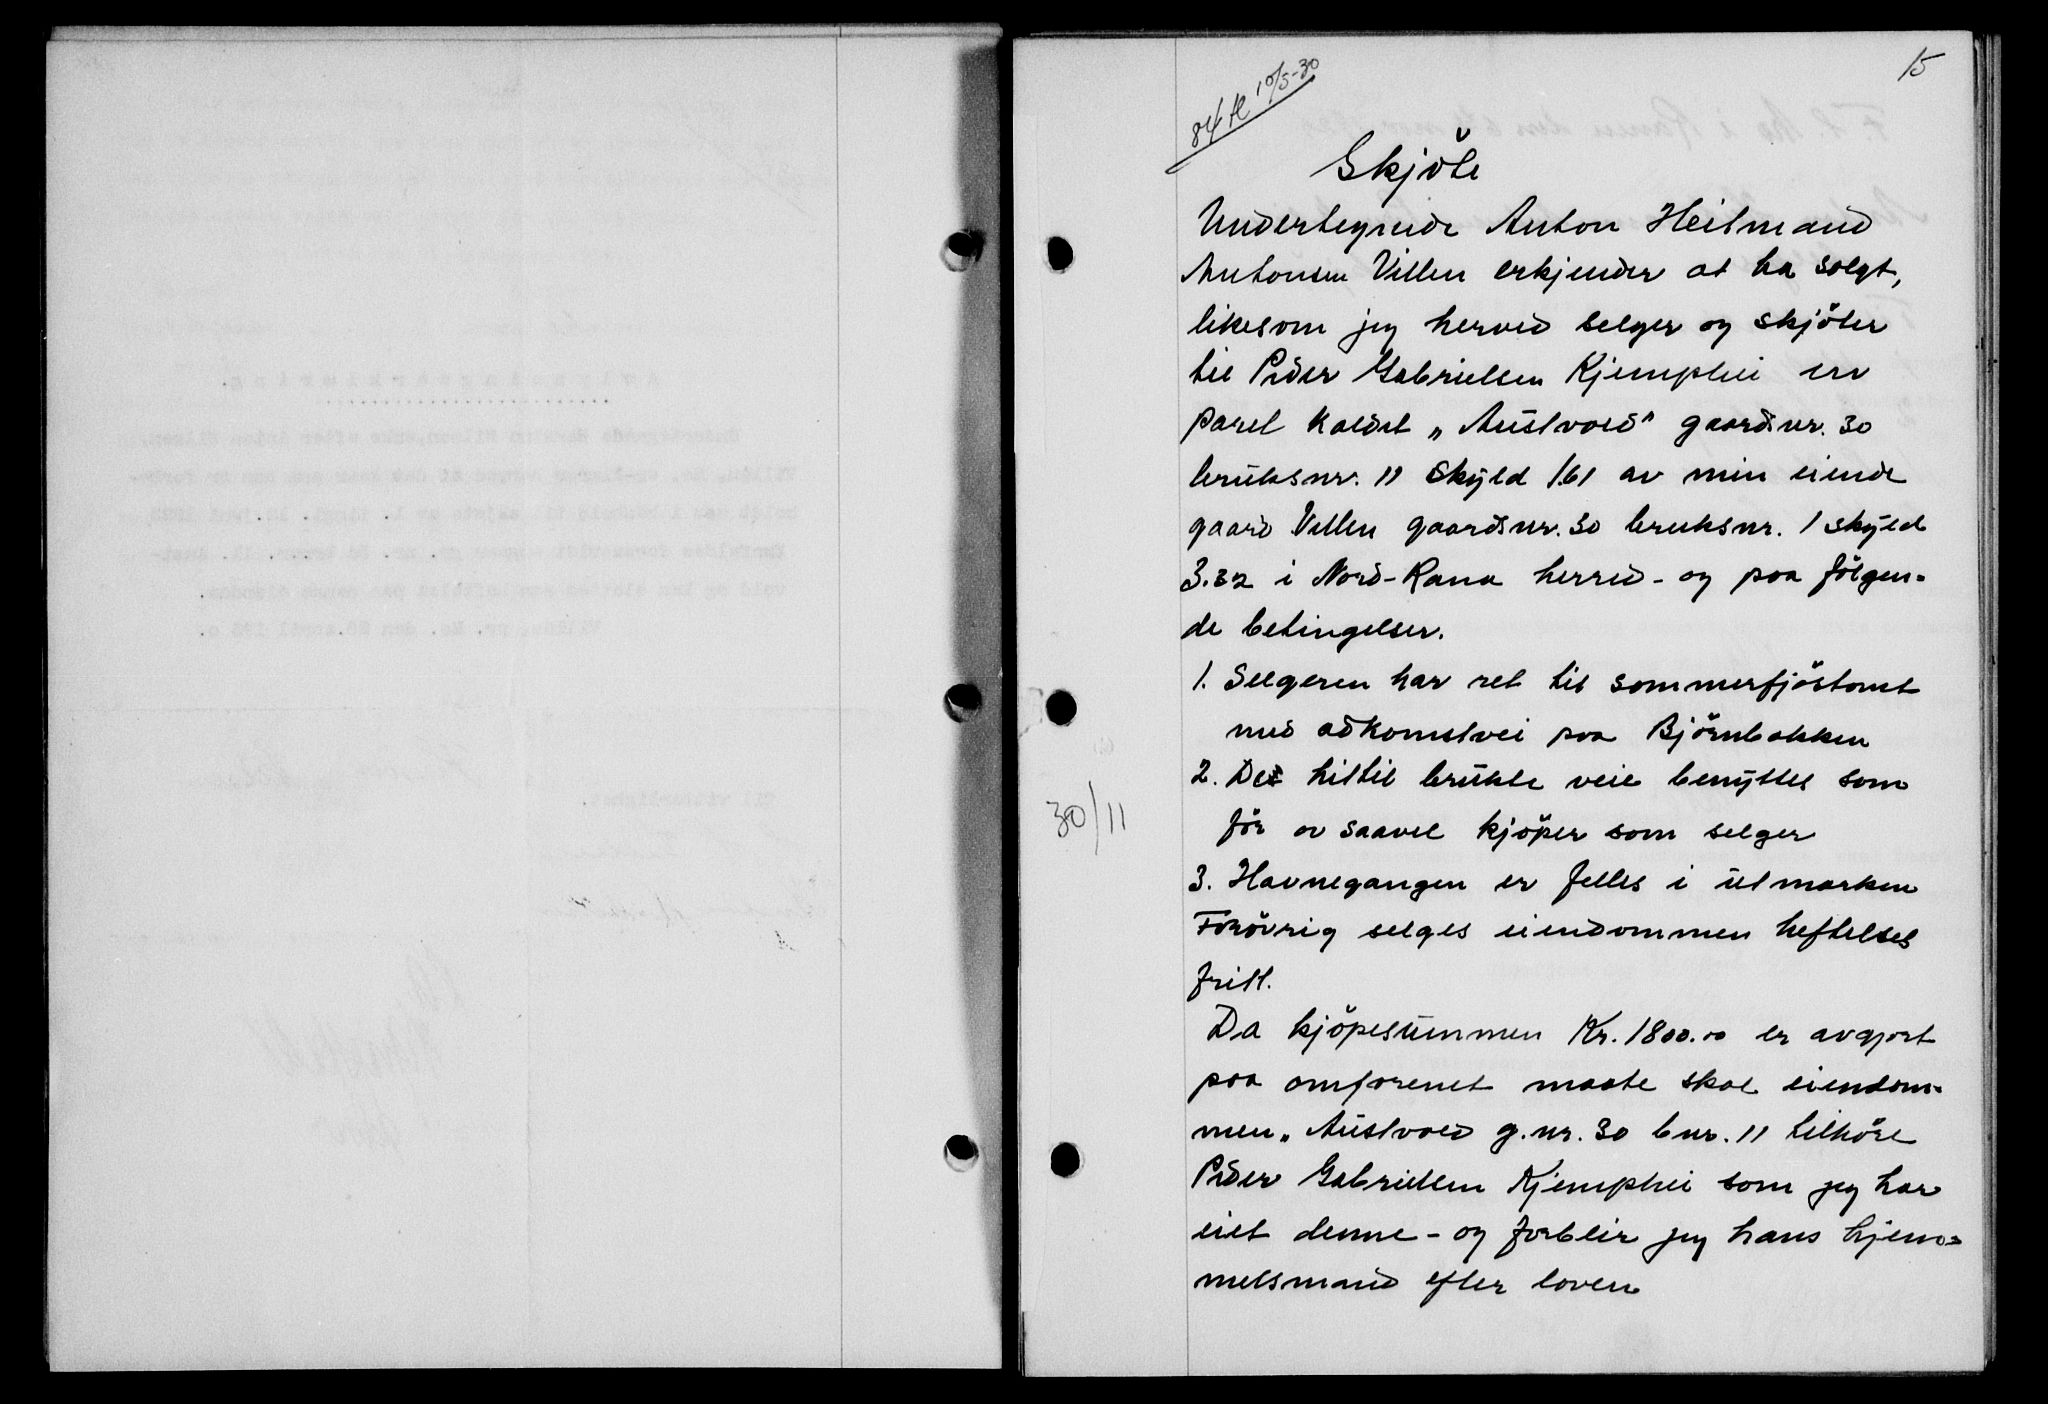 15
84 H 10/5-30
Skjöte
Undertegnede Anton Heilmand
Antonsen Villen erkjender at ha solgt,
likesom jeg herved selger og skjöter
til Peder Gabrielsen Kjemphei en
parel kaldet „Austvold" gaardsnr. 30
bruksnr. 11 skyld 1.61 av min eiende
gaard Villen gaardsnr. 30 bruksnr. 1 skyld
3.32 i Nord-Rana herred - og paa fölgen-
de betingelser.
1. Selgeren har ret til sommerfjöstomt
med adkomstvei paa Björnbakken
2. De hittil brukte veie benyttes som
för av saavel kjöper som selger
30/11
3. Havnegangen er felles i utmarken
Forövrig selges eiendommen heftelses
fritt.
Da kjöpesummen Kr. 1800.00 er avgjort
paa omforenet maate skal eiendom-
men „Austvold g.nr. 30 bnr. 11 tilhöre
Peder Gabrielsen Kjemphei som jeg har
eiet denne - og forblir jeg hans hjem-
melsmand efter loven